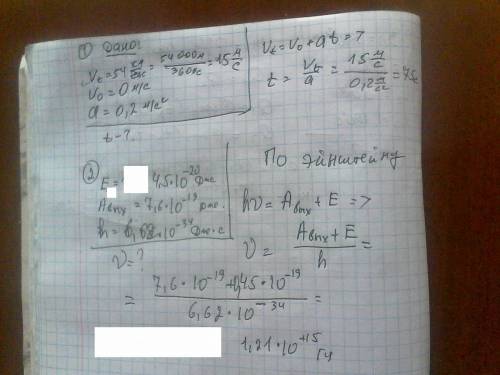 ① Дано:
Vt = 54 км/час = 54000м/3600с = 15 м/с
V0 = 0 м/с
a = 0,2 м/с²
t - ?
Vt = V0 + at = >
t = Vt/a = 15 м/с / 0,2 м/с² = 75с
②
E = 4,5·10⁻²⁰ Дж.
Aвых = 7,6·10⁻¹⁹ Дж.
h = 6,62·10⁻³⁴ Дж·с
ν = ?
По Эйнштейну
hν = Aвых + E = >
ν = Aвых + E / h =
= 7,6·10⁻¹⁹ + 0,45·10⁻¹⁹ / 6,62·10⁻³⁴ =
1,21·10⁺¹⁵ Гц